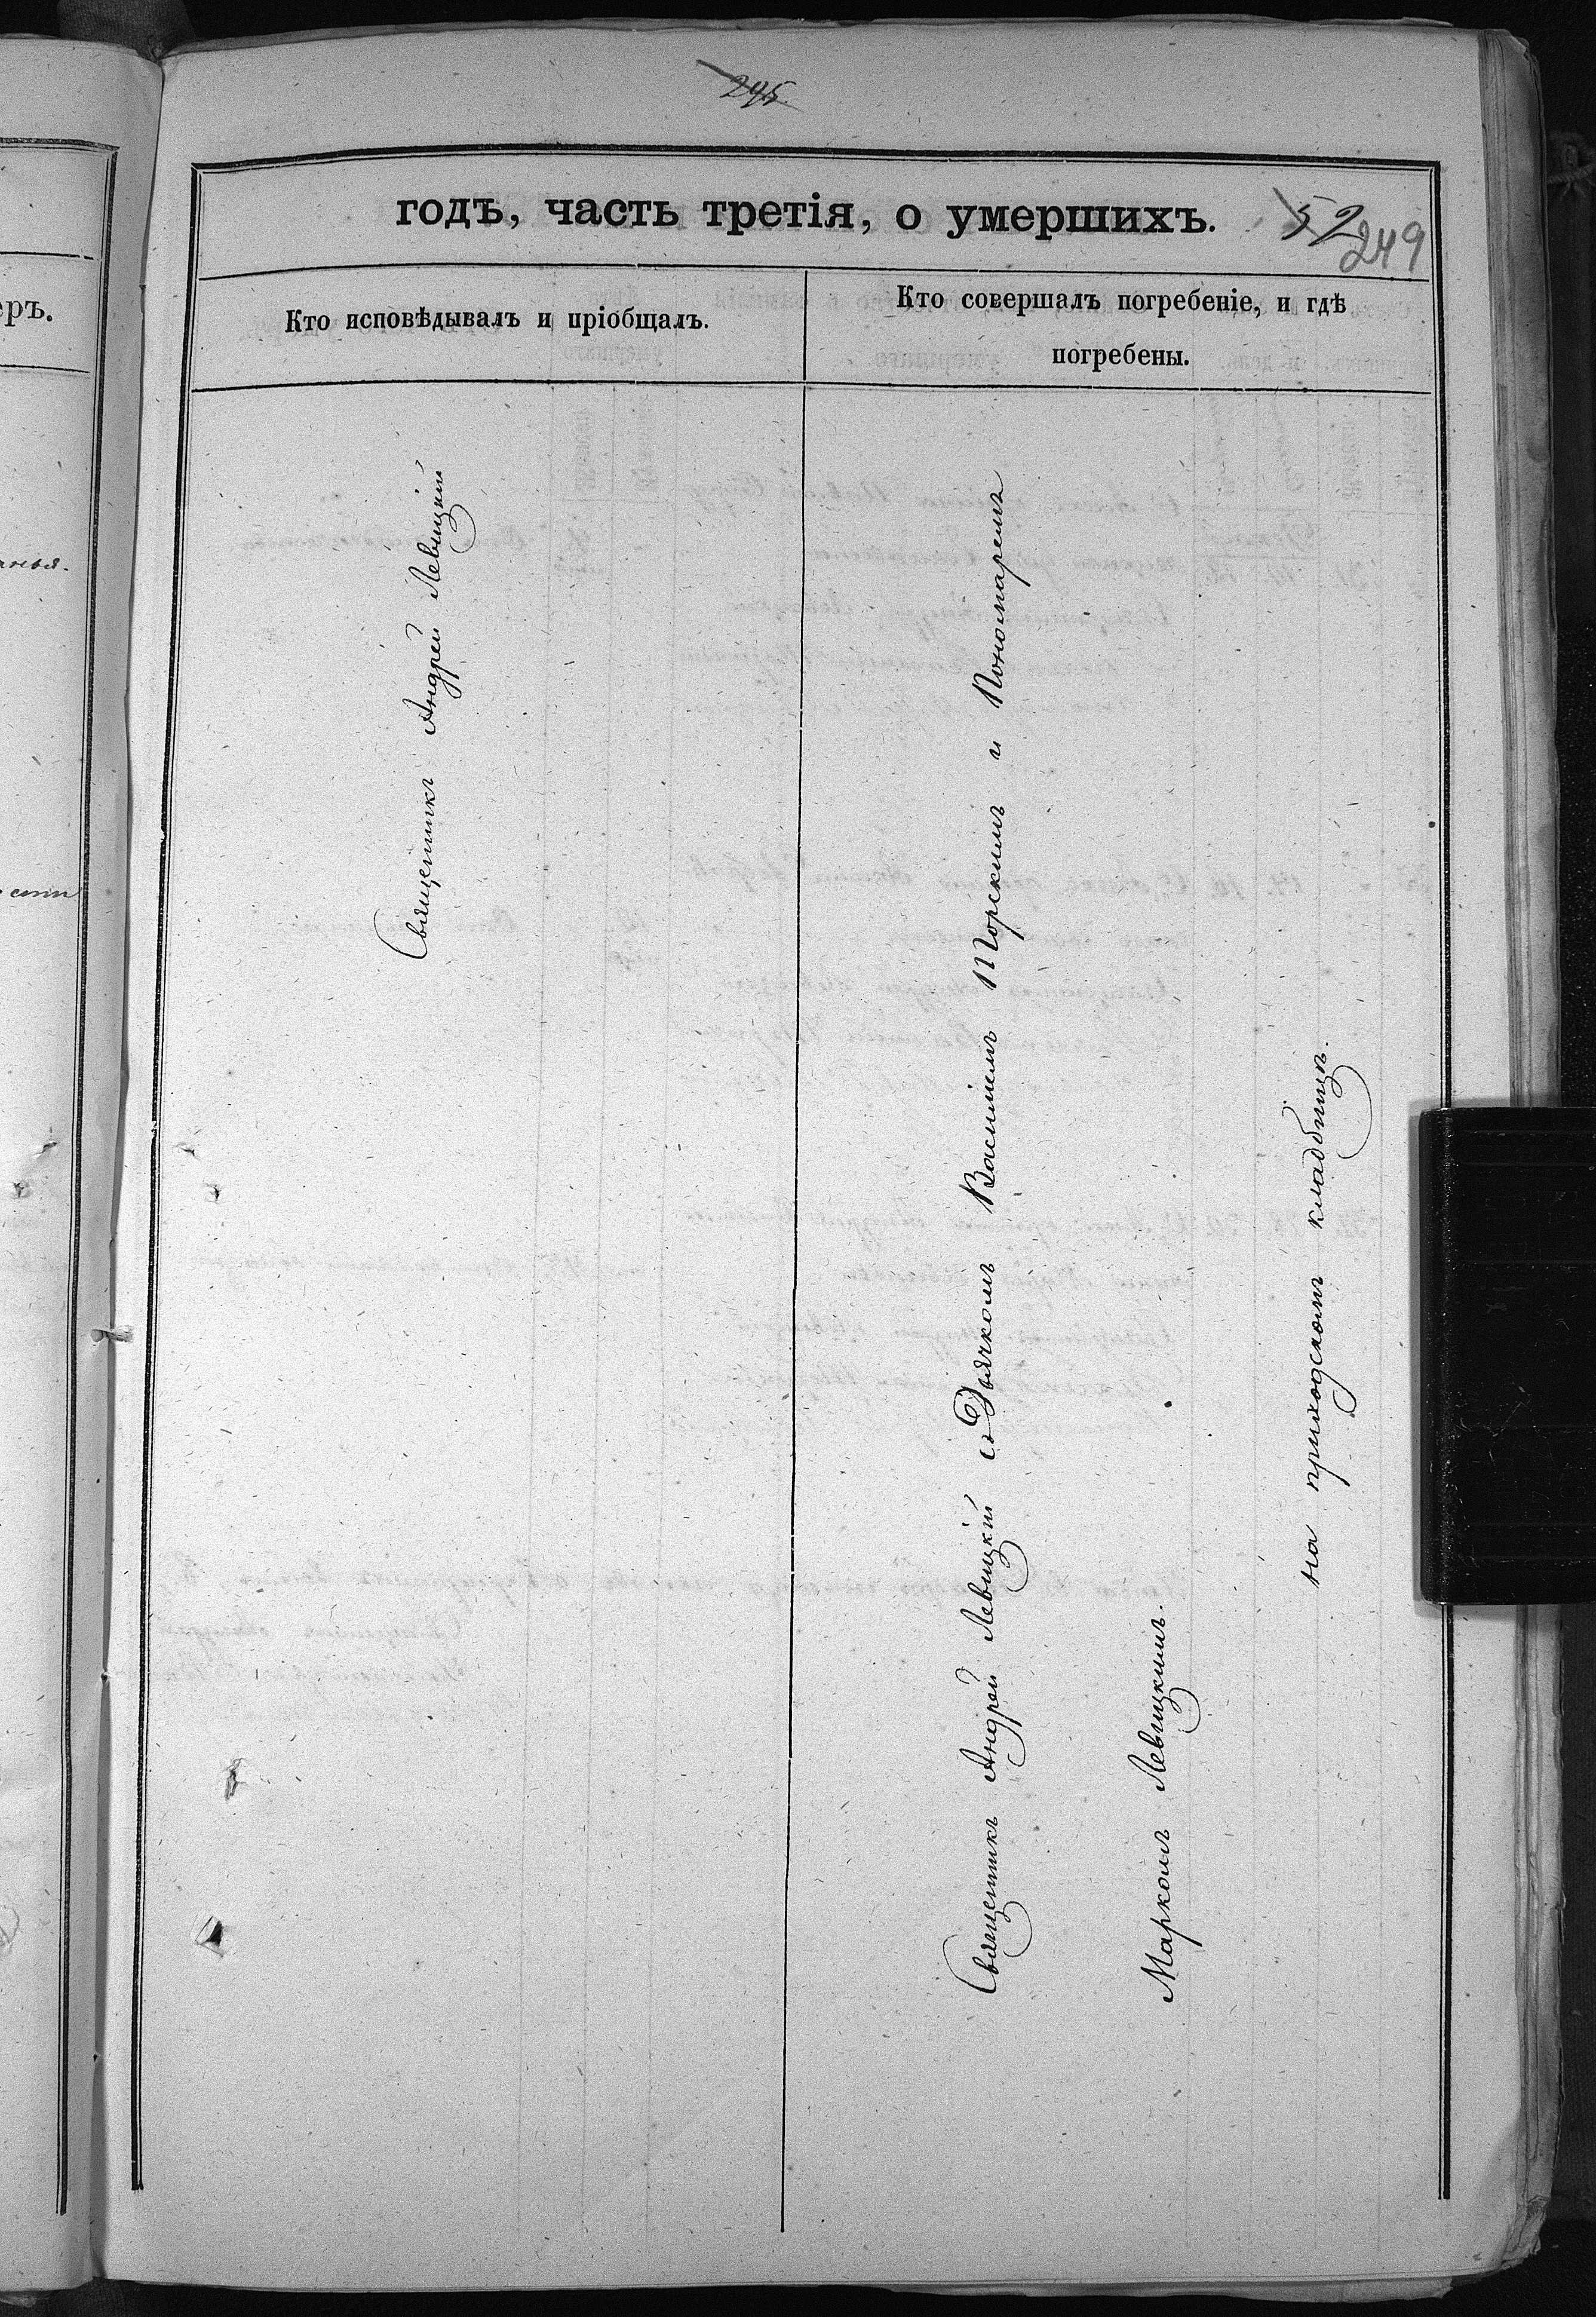 295
годъ, часть третія, о умершихъ.
52
249
еръ.
Кто исповѣдывалъ и пріобщалъ.
Кто совершалъ погребеніе, и гдѣ
погребены.
Священникъ Андрей Левицкій
Священникъ Андрей Левицкій съ Дьячкомъ Василіемъ Торскимъ и Пономаремъ
Маркомъ Левицкимъ.
на приходскомъ кладбищѣ.